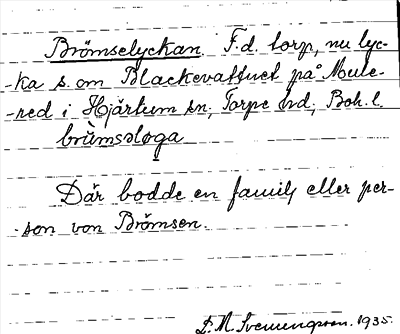 Brömselyckan. F.d. torp, nu lyc-
-ka s. om Blackevattnet på Moule-
-red i Hjärtum sn, Torpe hd, Boh. l.
brùmsəlǫga
Där bodde en familj eller per-
-son von Brömsen.
P. M. Svenungsson. 1935.